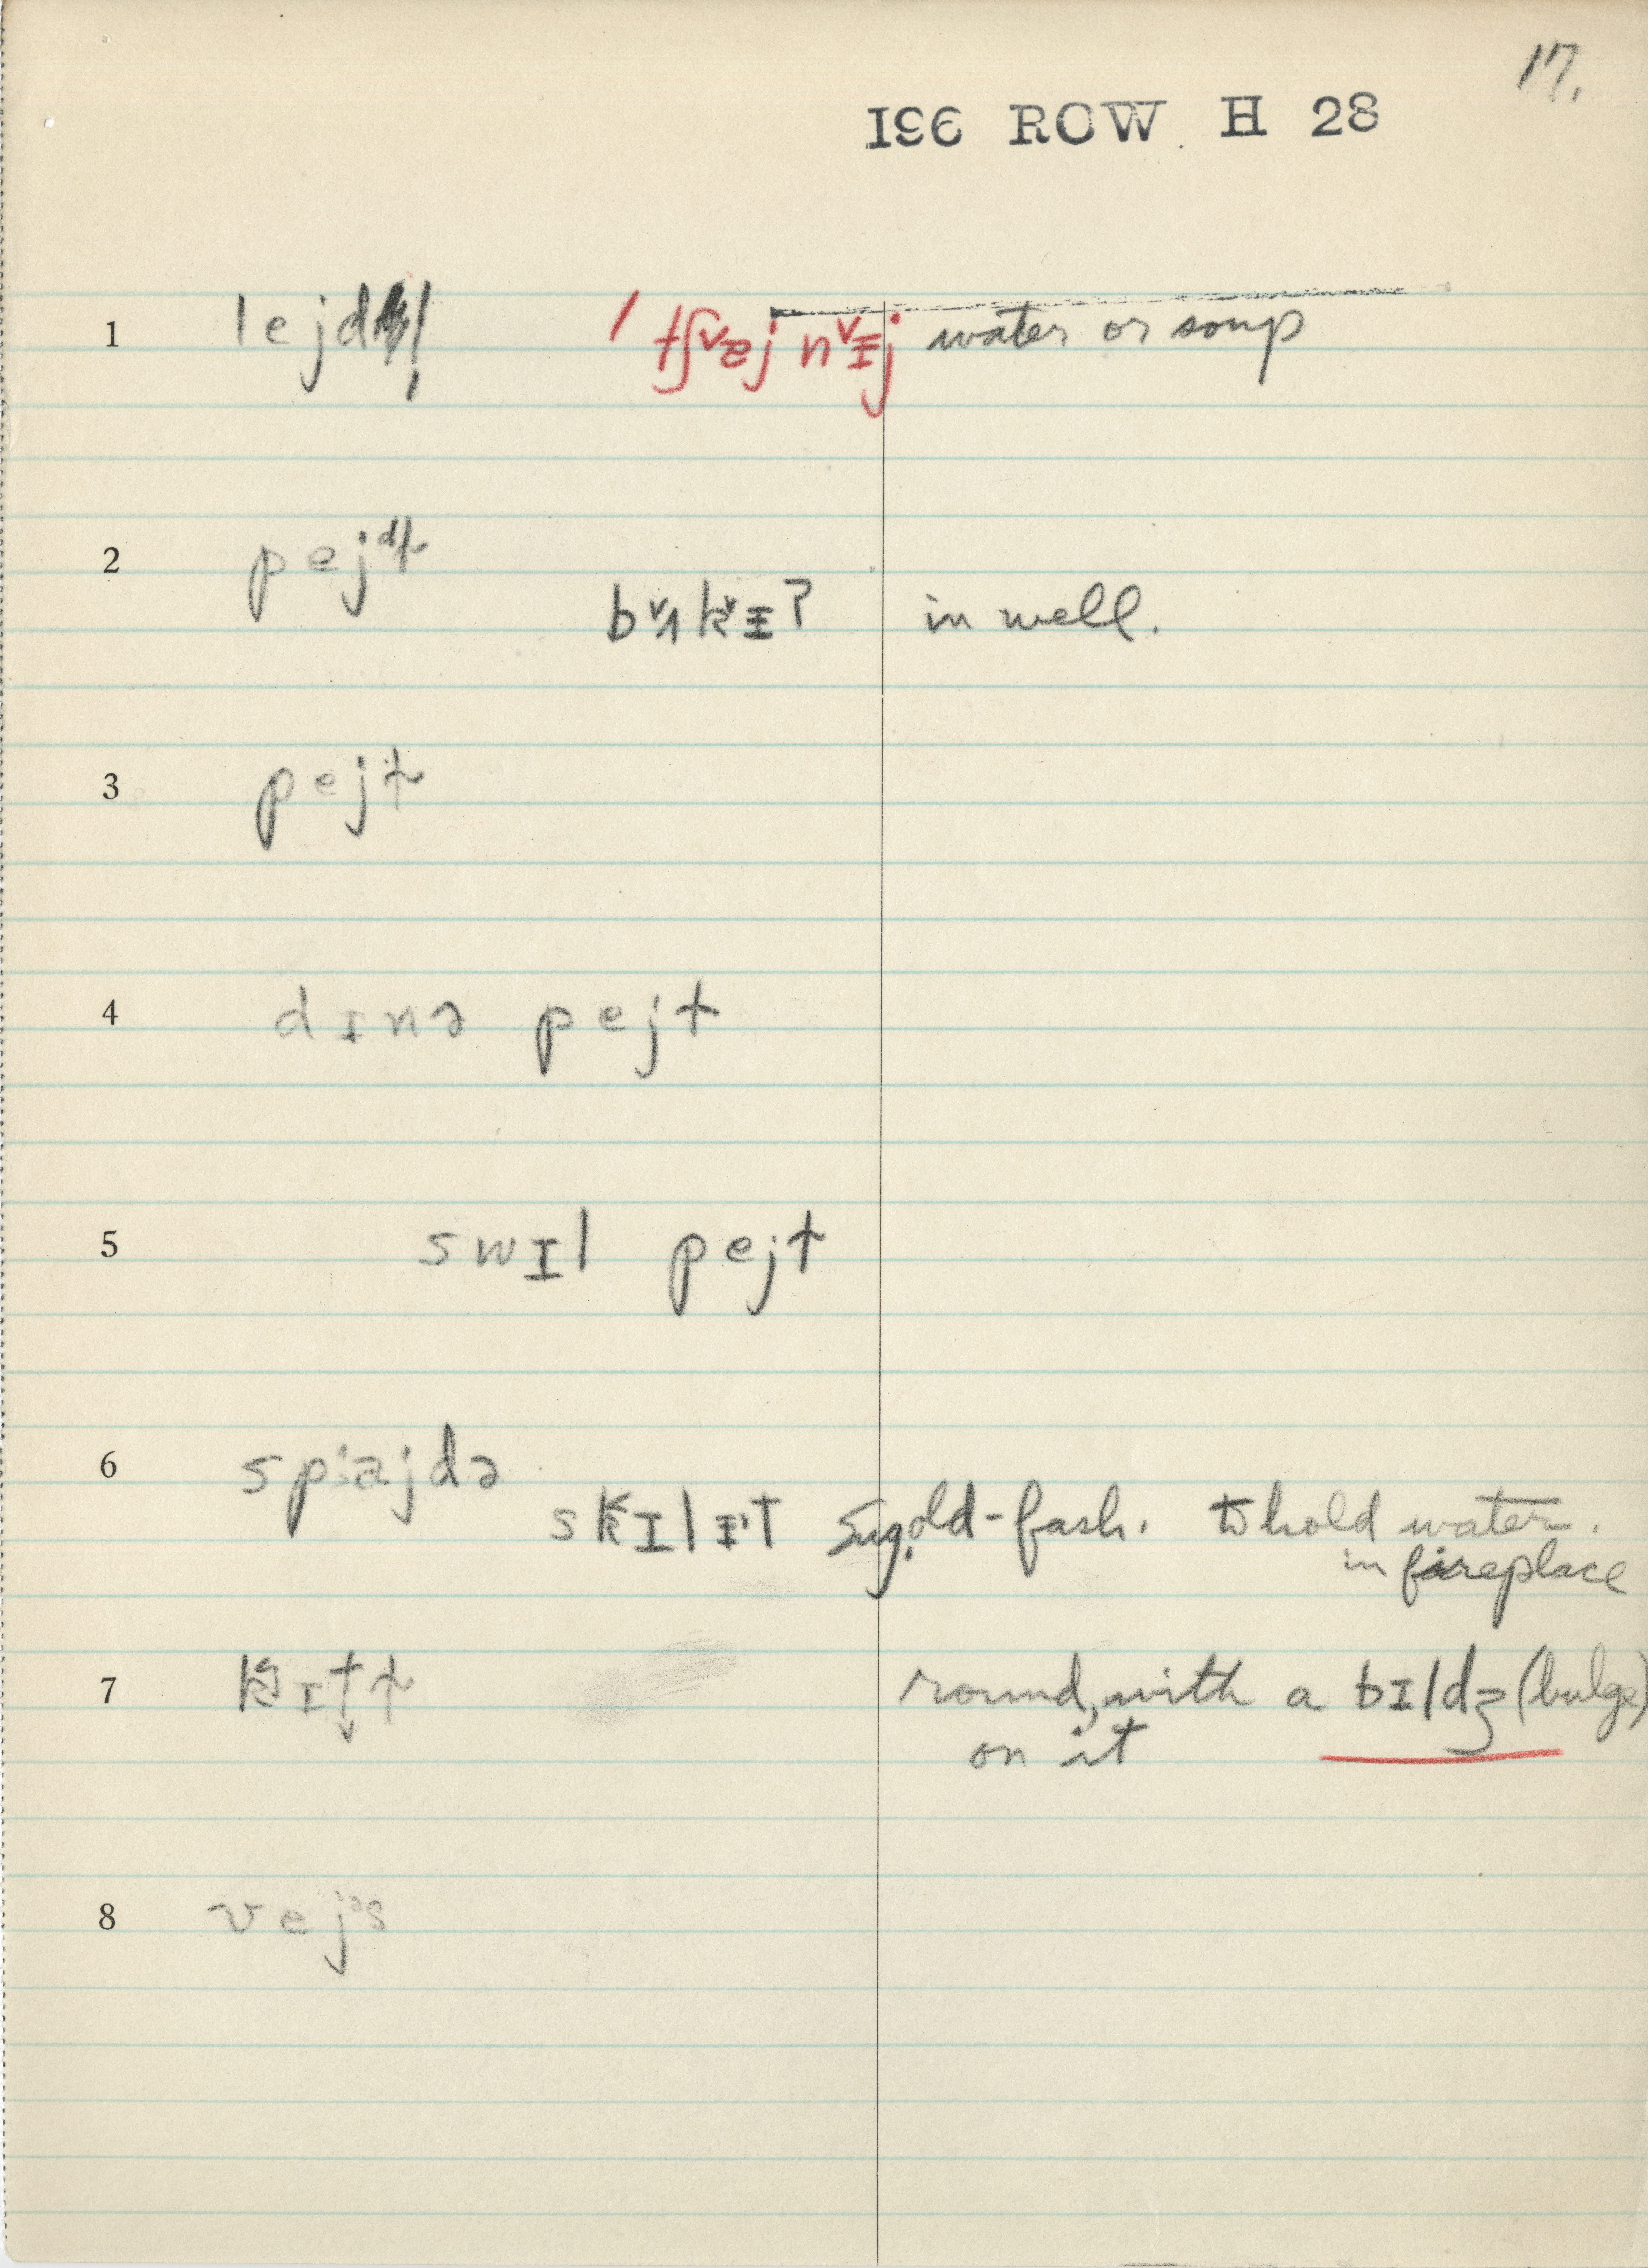 17.
196 ROW H 28
1 lejdl̩ tʃɐj nɪj water or soup
2 pejdɫ
bʌkɪʔ in well.
3 pejɫ
4 dɪnə pejt
5 swɪl pejt
6 spajdə
skɪlɪt Sug. old-fash. to hold water.
in fireplace
7 round, with a bɪldʒ (bulge)
on it
8 vejᵊs